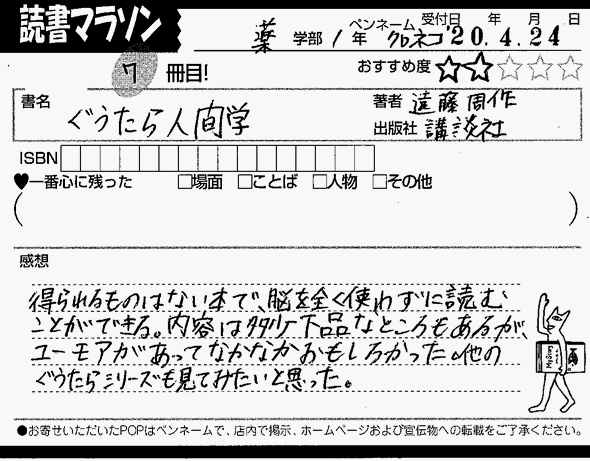 読書マラソン
薬 学部 1 年 ペンネーム クロネコ 受付日 '20.4.24 年 月 日
7 冊目! おすすめ度 ☆☆☆☆☆
書名 ぐうたら人間学 著者 遠藤周作
出版社 講談社
ISBN
♥一番心に残った □場面 □ことば □人物 □その他
( )
感想
得られるものはない本で、脳を全く使わずに読む
ことができる。内容は多少下品なところもあるが、
ユーモアがあってなかなかおもしろかった。他の
ぐうたらシリーズも見てみたいと思った。
●お寄せいただいたPOPはペンネームで、店内で掲示、ホームページおよび宣伝物への転載をご了承ください。